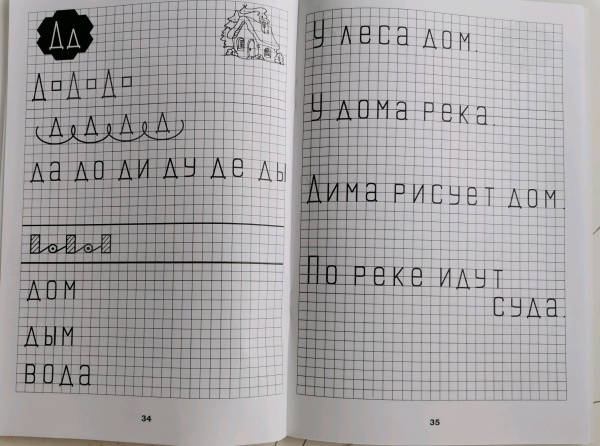 Дд
Д Д Д
Д Д Д Д
да до ди ду де ды
дом
дым
вода
34
У леса дом.
У дома река.
Дима рисует дом.
По реке идут
суда.
35